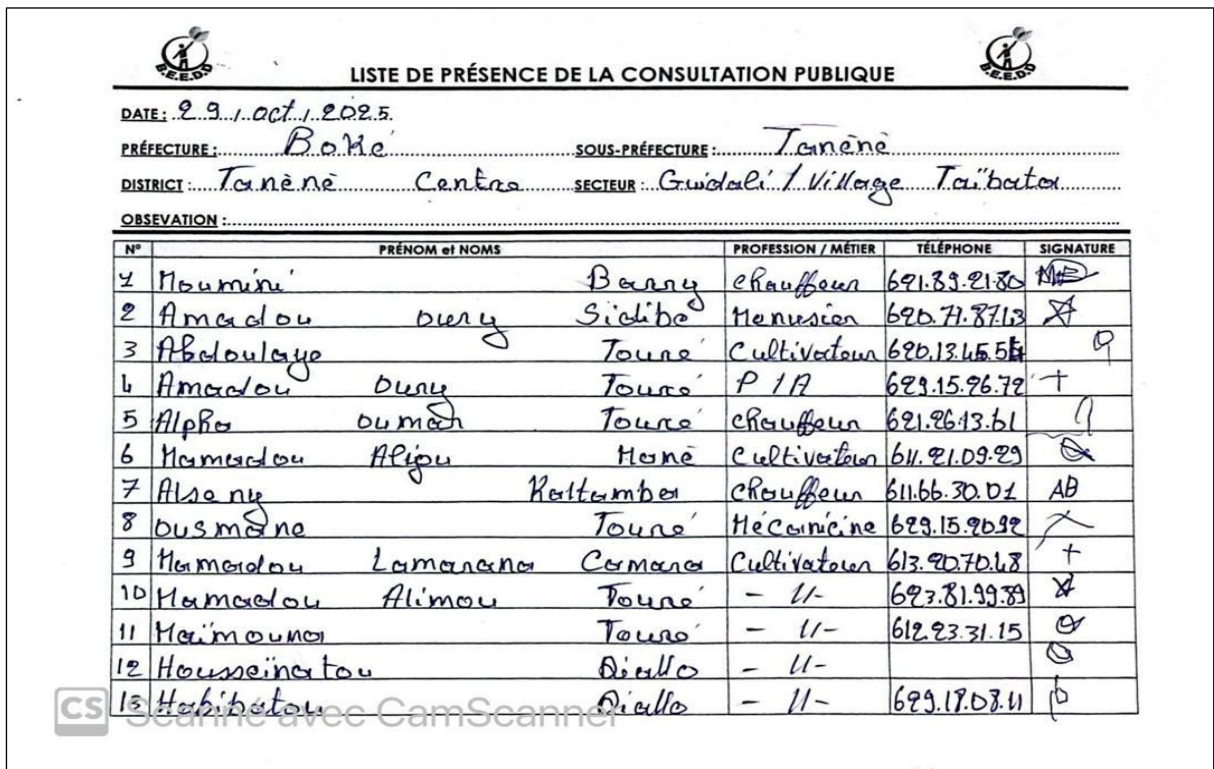 B.E.E.D.D B.E.E.D.D
LISTE DE PRÉSENCE DE LA CONSULTATION PUBLIQUE
DATE : 29 / Oct / 2025.
PRÉFECTURE : Boké SOUS-PRÉFECTURE : Tanènè
DISTRICT : Tanènè Centre SECTEUR : Guidali / Village Taïbata
OBSEVATION :
N° PRÉNOM et NOMS PROFESSION / MÉTIER TÉLÉPHONE SIGNATURE
1 Moumini Barry Chauffeur 621.89.21.80 MB
2 Amadou oury Sidibé Menusier 620.71.87.13
3 Abdoulaye Touré Cultivateur 620.13.45.54
4 Amadou Oury Touré P/A 629.15.26.72 +
5 Alpha oumar Touré Chauffeur 621.26.13.61
6 Mamadou Aliou Manè Cultivateur 611.21.09.29
7 Alsany Kaltamba Chauffeur 611.66.30.01 AB
8 Ousmane Touré Mécanicine 629.15.2092
9 Mamadou Lamarana Camara Cultivateur 613.20.70.48 +
10 Mamadou Alimou Touré - 11- 623.81.99.89
11 Maïmouna Touré - 11- 612.23.31.15
12 Housseïnatou Diallo - 11-
13 Habibatou Diallo - 11- 629.18.08.11
CS Scanné avec CamScanner